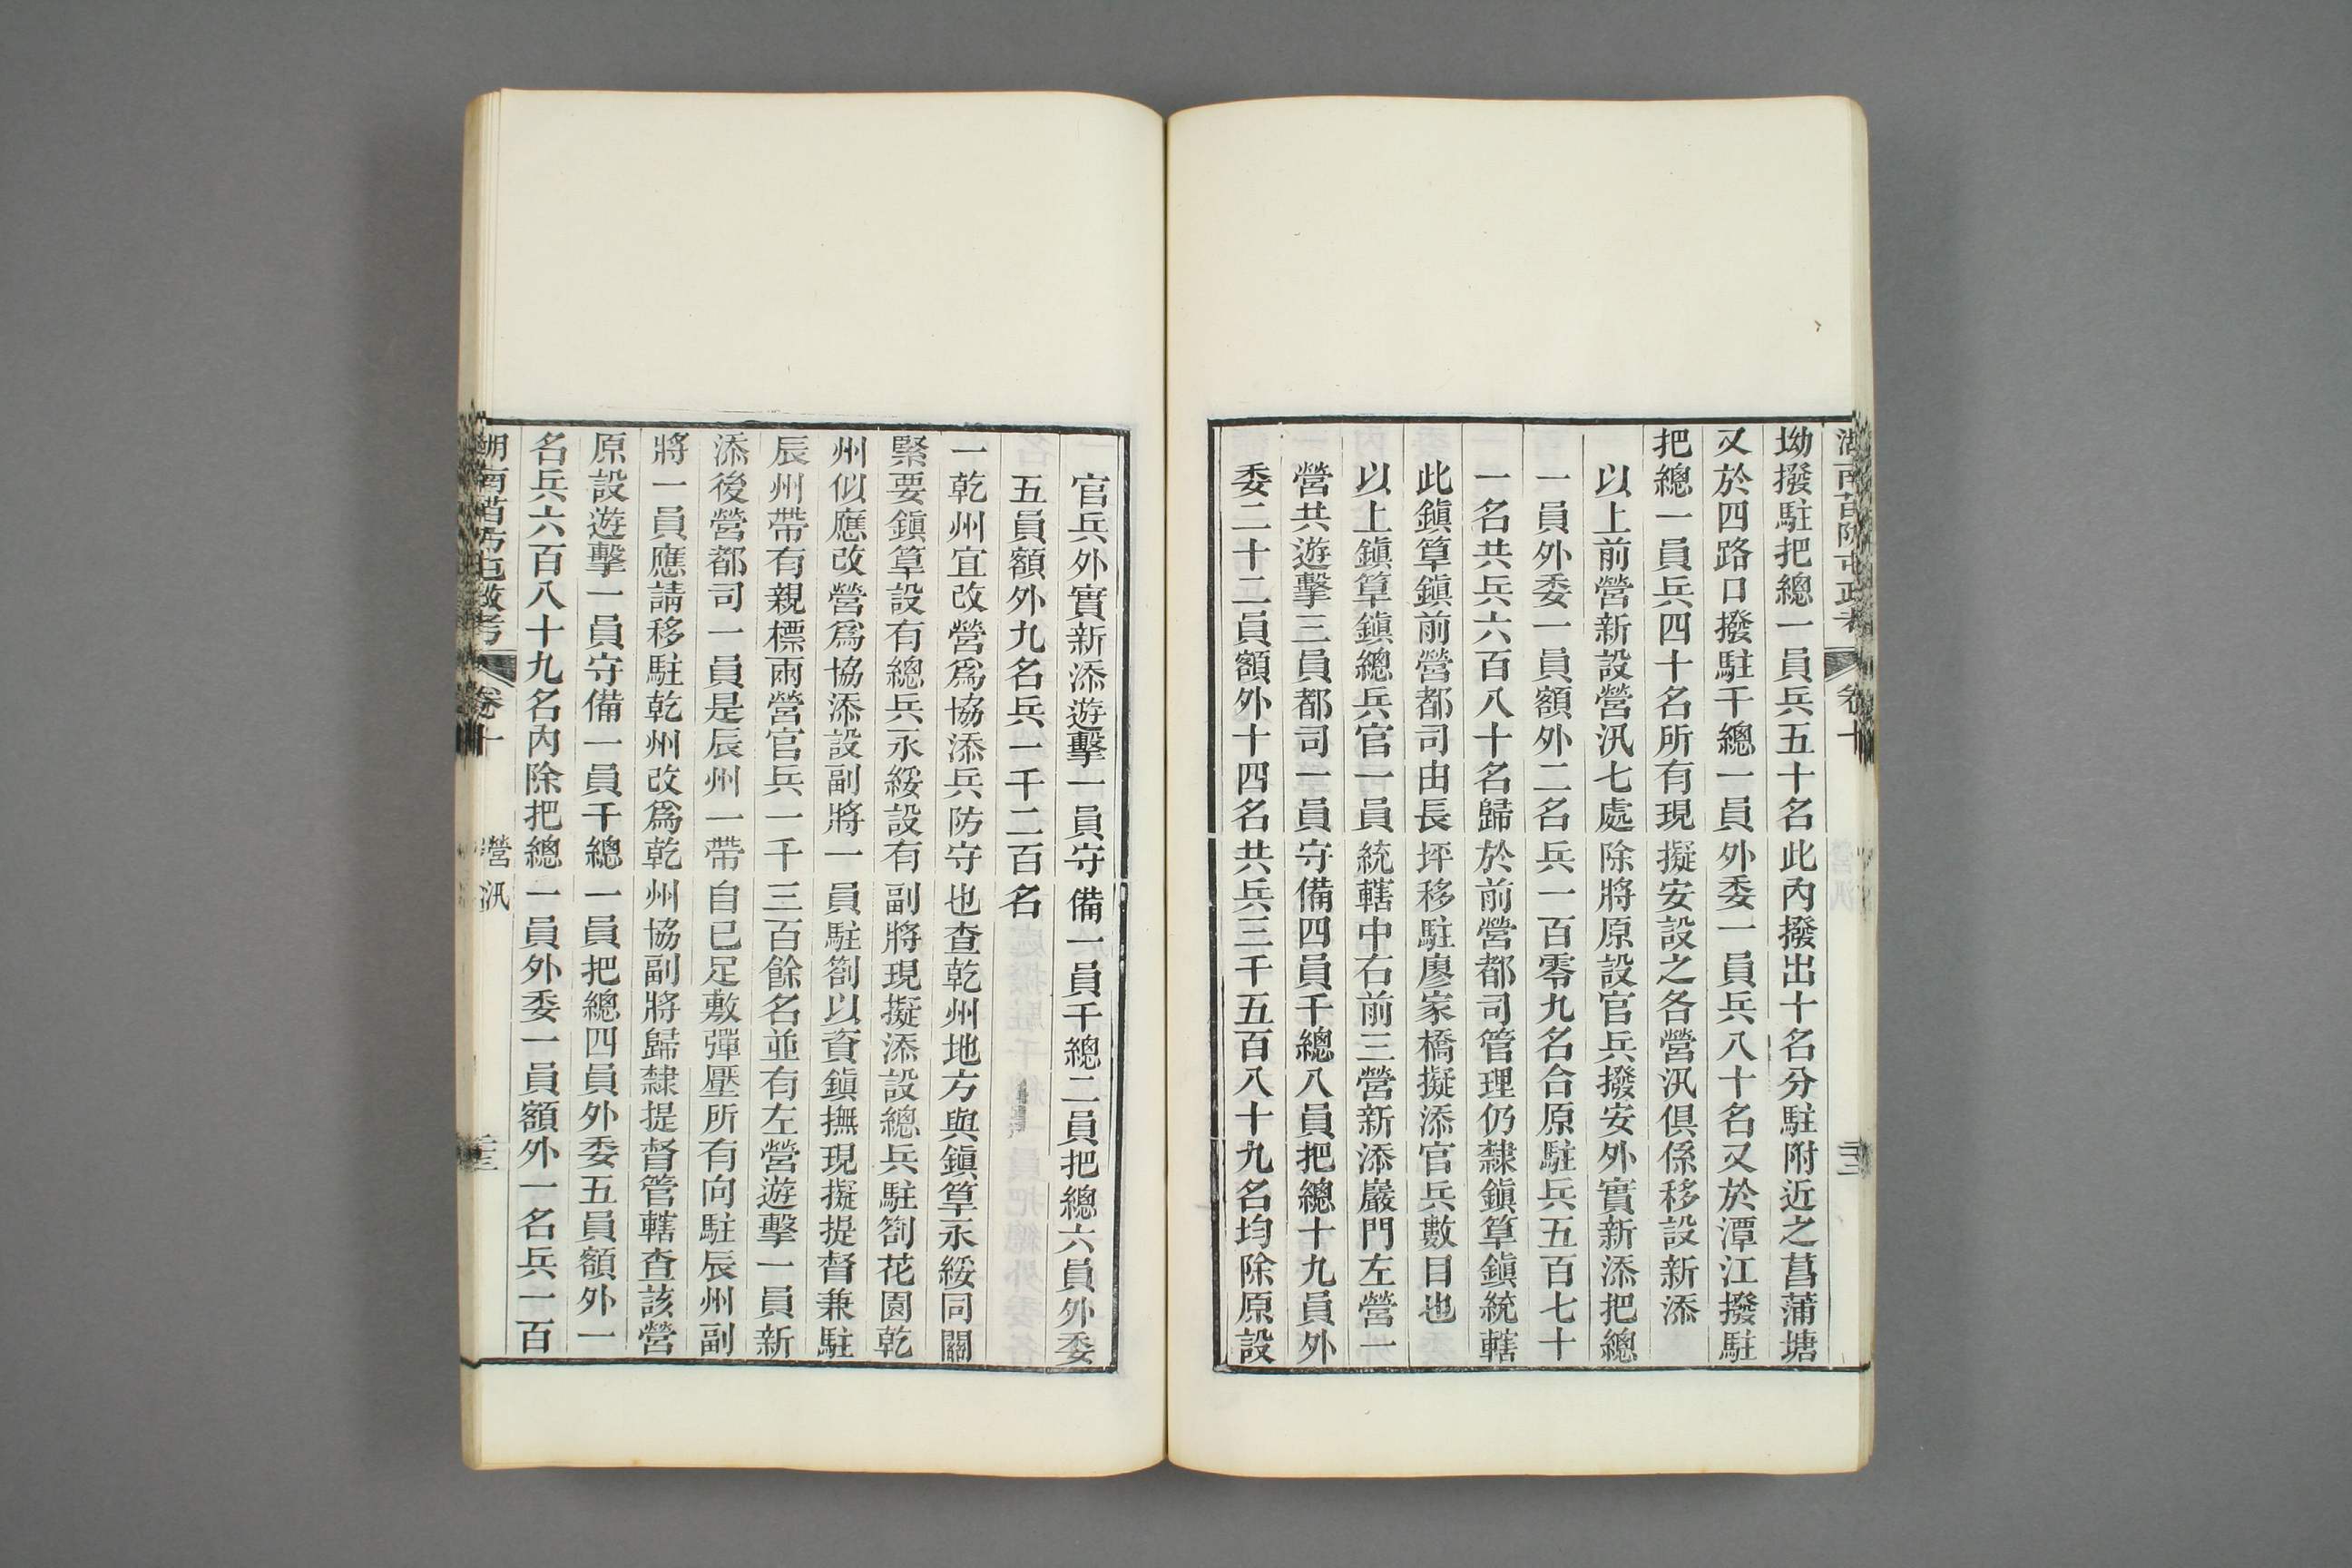 湖南苗防屯政考 卷十
坳撥駐把總一員兵五十名此內撥出十名分駐附近之菖蒲塘
又於四路口撥駐千總一員外委一員兵八十名又於潭江撥駐
把總一員兵四十名所有現擬安設之各營汛俱係移設新添
以上前營新設營汛七處除將原設官兵撥安外實新添把總
一員外委一員額外二名兵一百零九名合原駐兵五百七十
一名共兵六百八十名歸於前營都司管理仍隸鎭筸鎭統轄
此鎭筸鎭前營都司由長坪移駐廖家橋擬添官兵數目也
以上鎭筸鎭總兵官一員統轄中右前三營新添巖門左營一
營共遊擊三員都司一員守備四員千總八員把總十九員外
委二十二員額外十四名共兵三千五百八十九名均除原設
官兵外實新添遊擊一員守備一員千總二員把總六員外委
五員額外九名兵一千二百名
一乾州宜改營爲協添兵防守也查乾州地方與鎭筸永綏同關
緊要鎭筸設有總兵永綏設有副將現擬添設總兵駐劄花園乾
州似應改營爲協添設副將一員駐劄以資鎭撫現擬提督兼駐
辰州帶有親標兩營官兵一千三百餘名並有左營遊擊一員新
添後營都司一員是辰州一帶自已足敷彈壓所有向駐辰州副
將一員應請移駐乾州改爲乾州協副將歸隸提督管轄查該營
原設遊擊一員守備一員千總一員把總四員外委五員額外一
名兵六百八十九名內除把總一員外委一員額外一名兵一百
湖南苗防屯政考 卷十 營汛